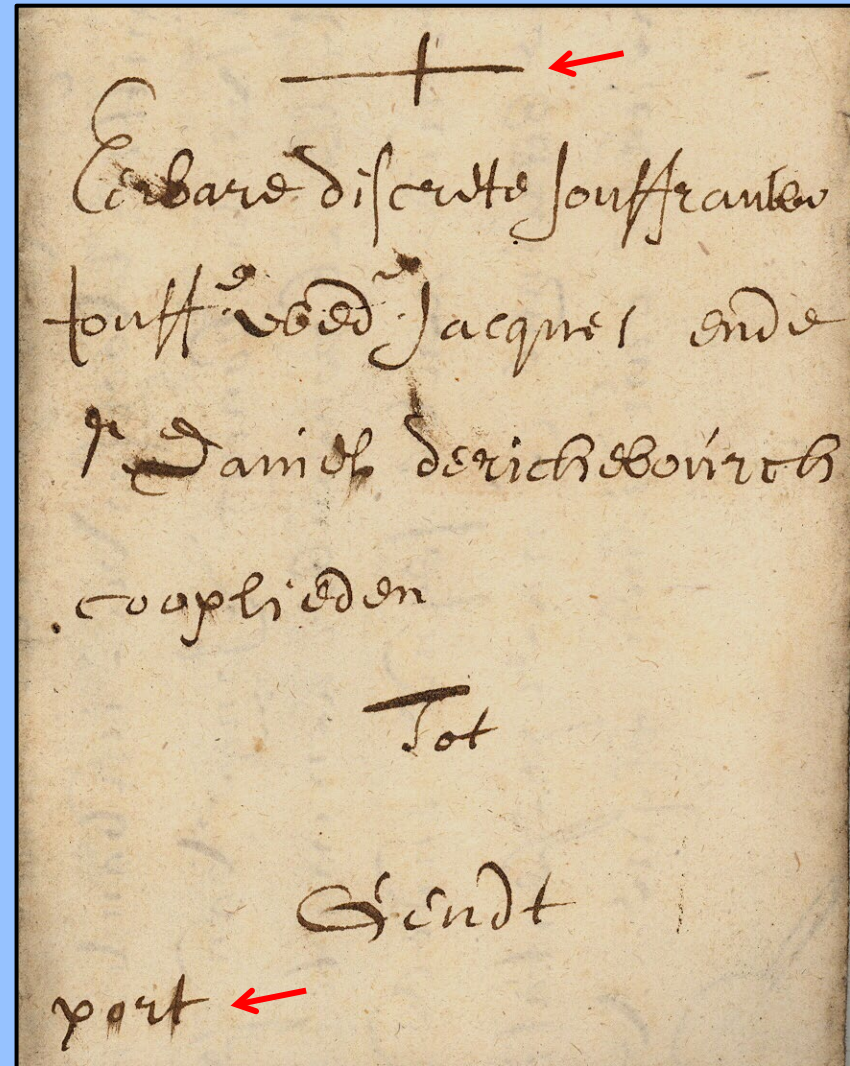 Eerbare discrete Jouffrauwe
Jouffe wede Jacques ende
Sr Daniel derichebourch
cooplieden
Tot
Gendt
port